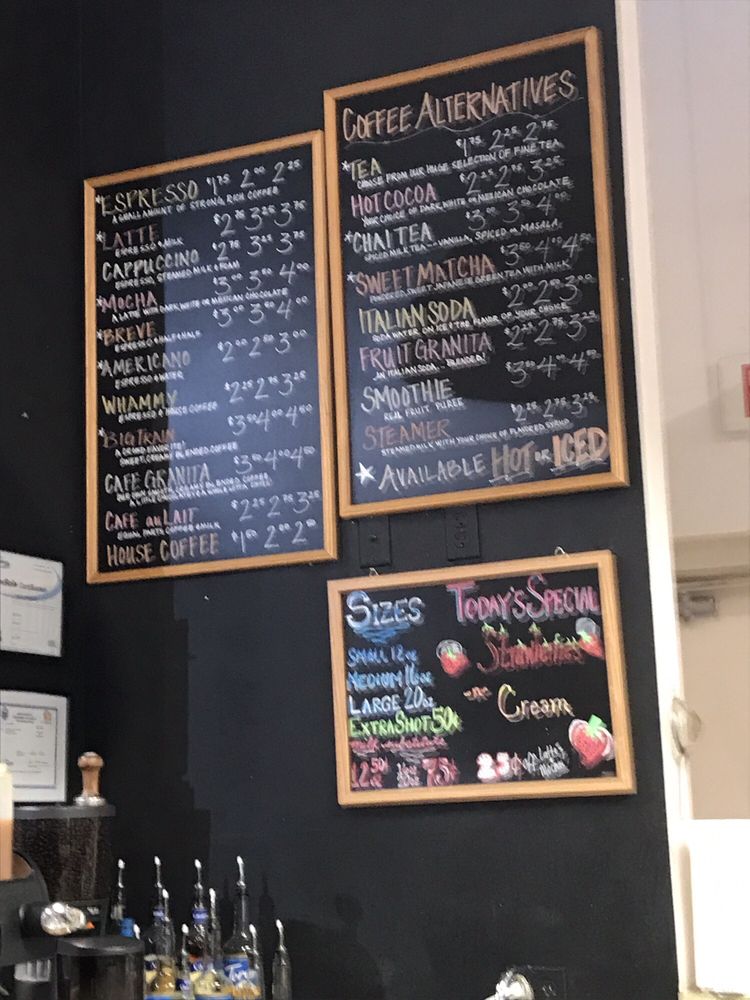 *ESPRESSO $1.75 2.00 2.25
A SMALL AMOUNT OF STRONG, RICH COFFEE
*LATTE $2.75 3.25 3.75
ESPRESSO & MILK
CAPPUCCINO $2.75 3.25 3.75
ESPRESSO, STEAMED MILK & FOAM
*MOCHA $3.00 3.50 4.00
A LATTE WITH DARK, WHITE OR MEXICAN CHOCOLATE
*BREVE $3.00 3.50 4.00
ESPRESSO & HALF & HALF
*AMERICANO $2.00 2.50 3.00
ESPRESSO & WATER
WHAMMY $2.25 2.75 3.25
ESPRESSO & HOUSE COFFEE
*BIG TRAIN $3.50 4.00 4.50
A CROWD FAVORITE!
SWEET, CREAMY BLENDED COFFEE
CAFE GRANITA $3.50 4.00 4.50
OUR OWN SMOOTH, CREAMY, BLENDED COFFEE
CAFE au LAIT $2.25 2.75 3.25
EQUAL PARTS COFFEE & MILK
HOUSE COFFEE $1.50 2.00 2.50
COFFEE ALTERNATIVES
*TEA $1.75 2.25 2.75
CHOOSE FROM OUR HUGE SELECTION OF FINE TEA
HOT COCOA $2.25 2.75 3.25
YOUR CHOICE OF DARK, WHITE OR MEXICAN CHOCOLATE
*CHAI TEA $3.00 3.50 4.00
SPICED MILK TEA - VANILLA, SPICED OR MASALA
*SWEET MATCHA $3.50 4.00 4.50
POWDERED, SWEET JAPANESE GREEN TEA WITH MILK
ITALIAN SODA $2.00 2.50 3.00
SODA WATER ON ICE & THE FLAVOR OF YOUR CHOICE
FRUIT GRANITA $2.25 2.75 3.25
AN ITALIAN SODA... BLENDED!
SMOOTHIE $3.50 4.00 4.50
REAL FRUIT PUREE
STEAMER $2.25 2.75 3.25
STEAMED MILK WITH YOUR CHOICE OF FLAVORED SYRUP
AVAILABLE HOT OR ICED
SIZES
SMALL 12oz
MEDIUM 16oz
LARGE 20oz
EXTRA SHOT 50¢
12oz 50¢ 75¢
TODAY'S SPECIAL
Strawberries
-n-
Cream
25¢ off Latte's